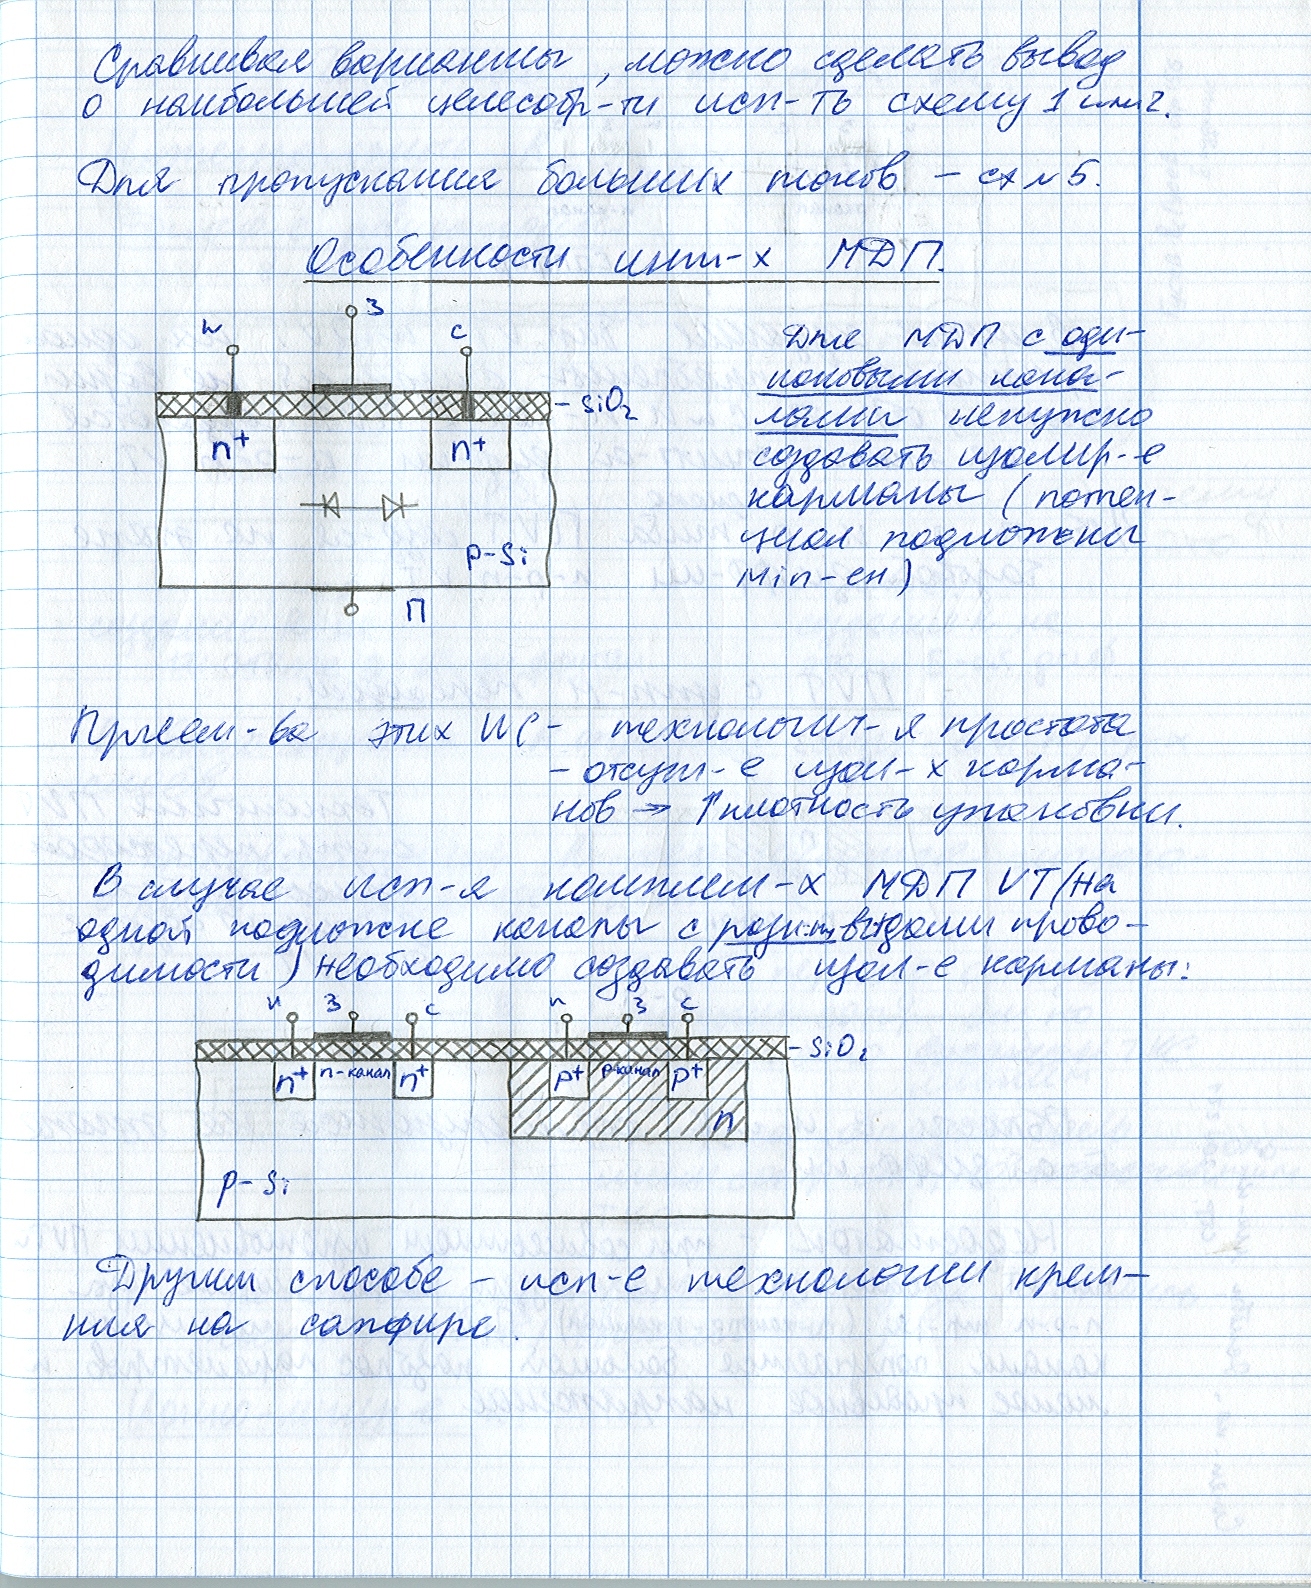 Сравнивая варианты, можно сделать вывод
о наибольшей целесобр-ти исп-ть схему 1 или 2.
Для пропускания больших токов - сх №5.
Особенности инт-х МДП.
И
З
С
- SiO2
n+
n+
p-Si
П
Для МДП с оди-
наковыми кана-
лами ненужно
создавать изолир-е
карманы (потен-
циал подложки
min-ен)
Преим-ва этих ИС - технологич-я простота
- отсут-е изол-х карма-
нов → ↑ плотность упаковки.
В случае исп-я комплем-х МДП VT (на
одной подложке каналы с видами прово-
димости) необходимо создавать изол-е карманы:
и З С и З С
- SiO2
n+ n-канал n+ p+ p-канал p+
n
p-Si
Другим способе - исп-е технологии крем-
ния на сапфире.